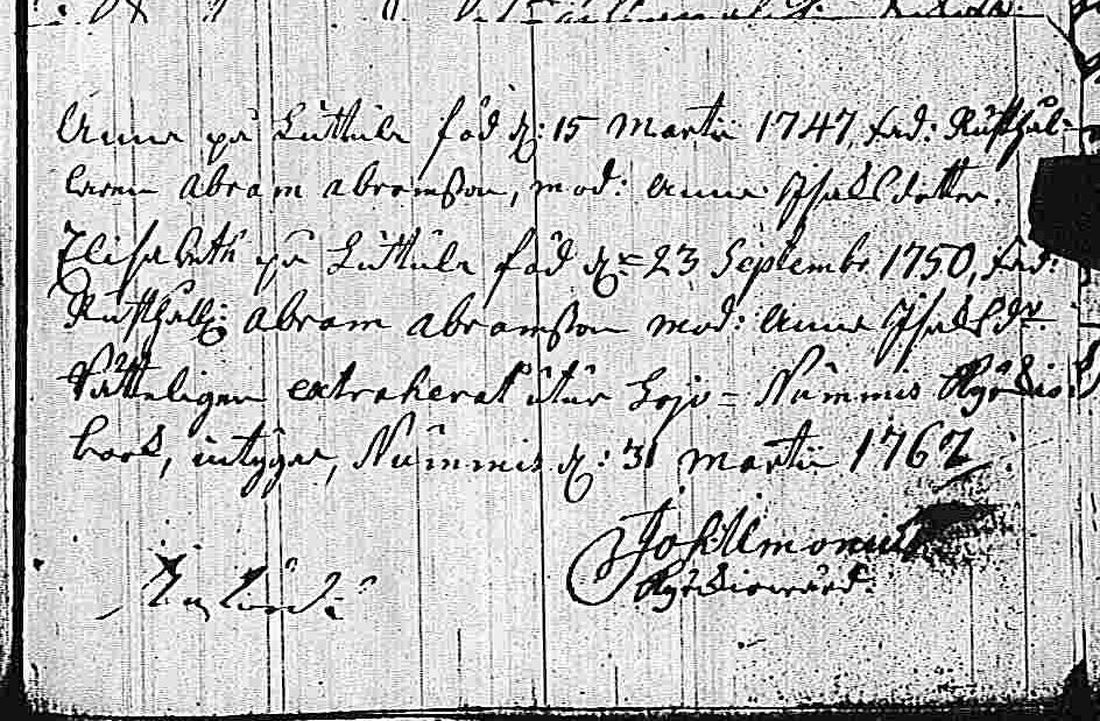 Anna på Luttula född d: 15 Martii 1747, fad: Rusthål-
laren Abram Abramsson, mod: Anna Isaksdotter.
Elisabeth på Luttula född d: 23 Septembr 1750, fad:
Rusthåll: Abram Abramsson mod: Anna Isaksdr.
Rätteligen extraherat utur Lojo-Nummis Kyrkio-
bok, intygar, Nummis d: 31 Martii 1762
Joh: Umonius
Kyrkioward.